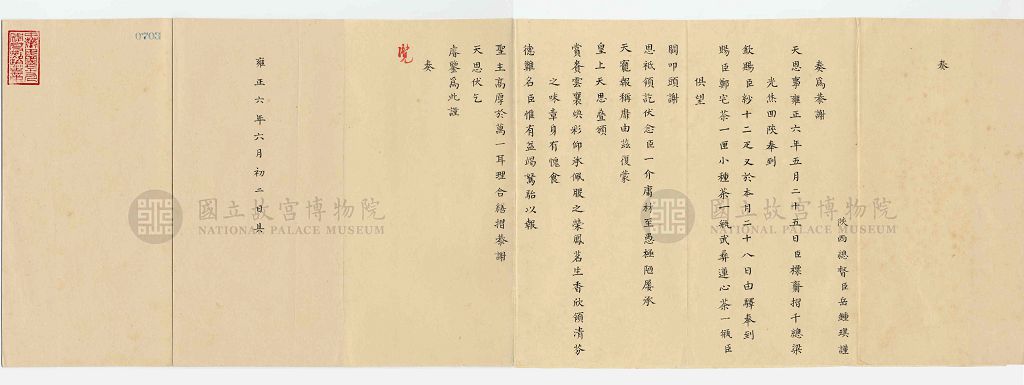 奏
陝西總督臣岳鍾琪謹
奏為恭謝
天恩事雍正六年五月二十五日臣標齎摺千總梁
光焦回陝奉到
欽賜臣紗十二疋又於本月二十八日由驛奉到
賜臣鄭宅茶一匣小種茶一瓶武彝蓮心茶一瓶臣
俱望
闕叩頭謝
恩祗領訖伏念臣一介庸材至愚極陋屢承
天寵報稱靡由茲復蒙
皇上天恩疊頒
賞賚雲裳煥彩仰承佩服之榮鳳茗生香欣領清芬
之味章身有愧食
德難名臣惟有益竭駑駘以報
聖主高厚於萬一耳理合繕摺恭謝
天恩伏乞
睿鑒為此謹
奏
覽
雍正六年六月初二日具
0703
國立故宮博物院
NATIONAL PALACE MUSEUM
國立故宮博物院
NATIONAL PALACE MUSEUM